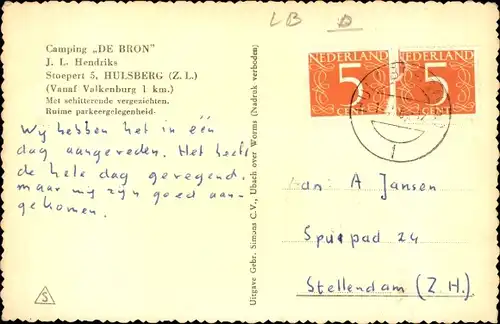 LB
Camping „DE BRON"
J. L. Hendriks
Stoepert 5, HULSBERG (Z. L.)
(Vanaf Valkenburg 1 km.)
Met schitterende vergezichten.
Ruime parkeergelegenheid.
Wij hebben het in één
dag aangereden. Het heeft
de hele dag geregend.
maar wij zijn goed aan-
gekomen.
S
Uitgave Gebr. Simons C.V., Ubach over Worms (Nadruk verboden)
NEDERLAND
5
CENT
NEDERLAND
5
CENT
Aan: A Jansen
Spuipad 24
Stellendam (Z.H.)